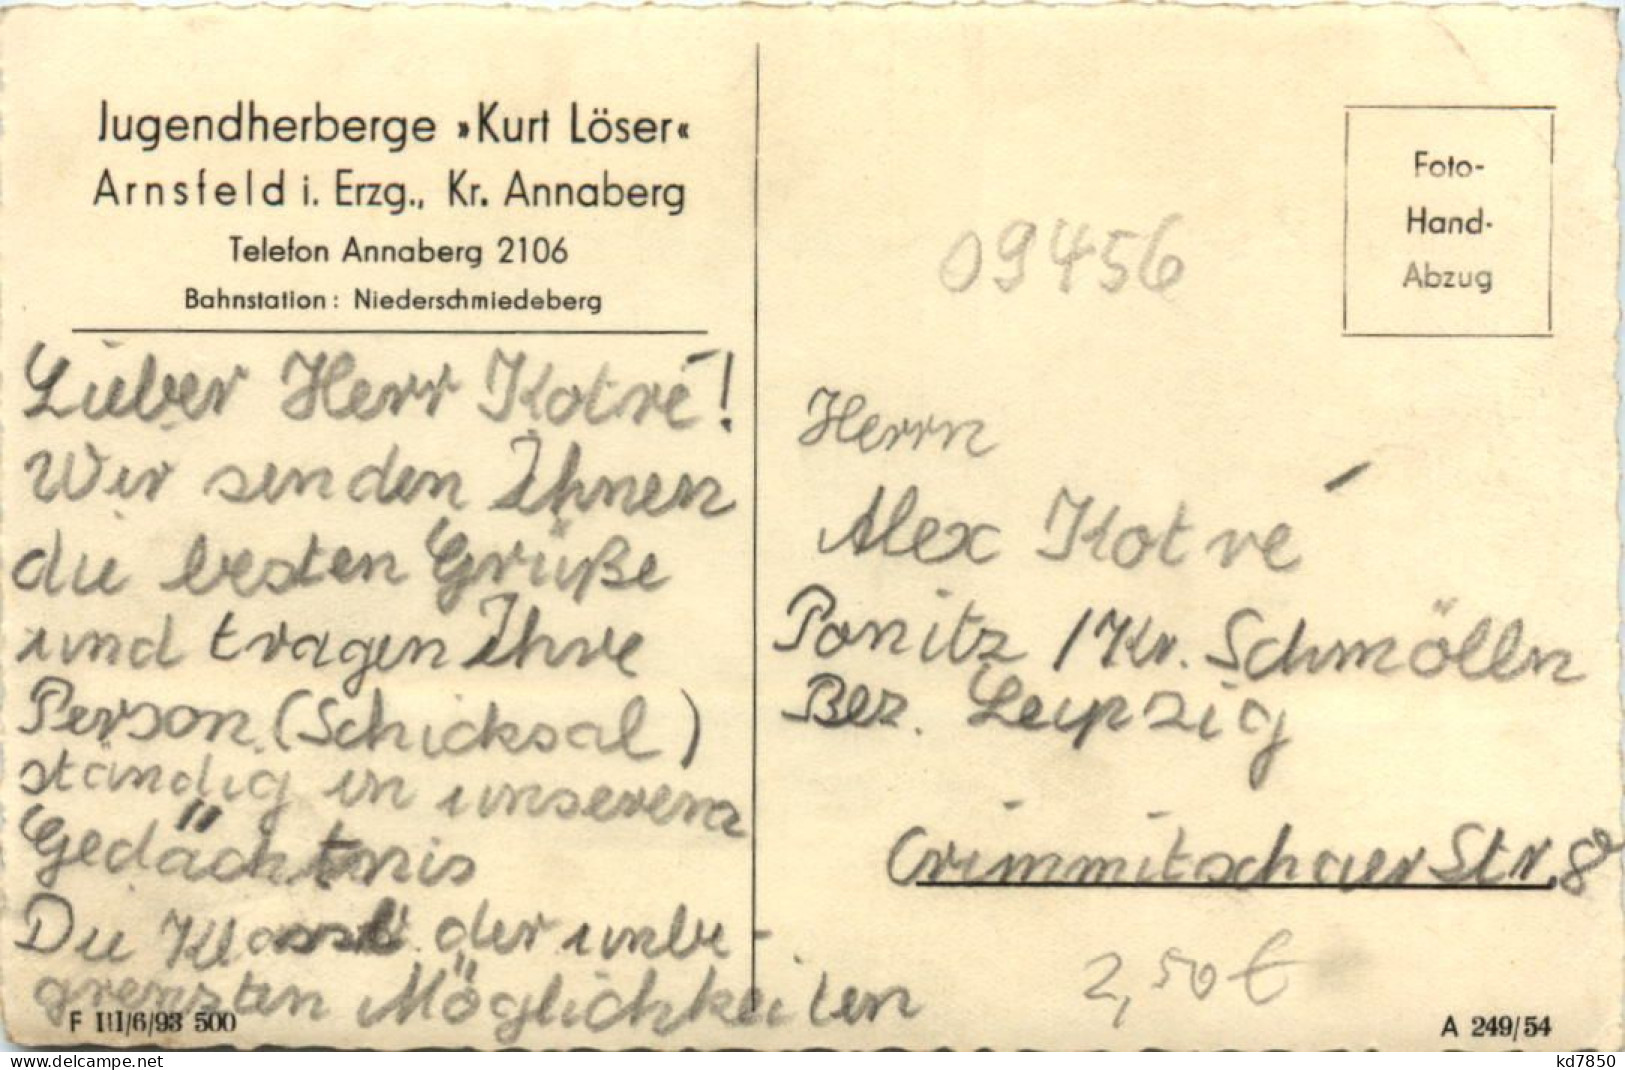 Jugendherberge »Kurt Löser«
Arnsfeld i. Erzg., Kr. Annaberg
Telefon Annaberg 2106
Bahnstation: Niederschmiedeberg
Lieber Herr Kotré!
Wir senden Ihnen
die besten Grüße
und tragen Ihre
Person (Schicksal)
ständig in unserem
Gedächtnis
Die Klasse der unbe-
grenzten Möglichkeiten
F III/6/93 500
Foto-
Hand-
Abzug
09456
Herrn
Alex Kotré
Ponitz / Kr. Schmölln
Bez. Leipzig
Crimmitschauer Str. 8
2,50 €
A 249/54
www.delcampe.net
kd7850